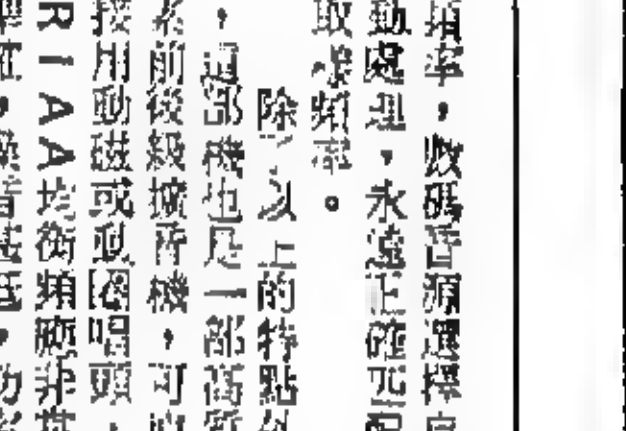 頻率，數碼音源選擇
動處理，永遠正確匹配
取樣頻率。
除了以上的特點外
，這部機也是一部高質
素前後級擴音機，可
接用動磁或動圈唱頭，
RIAA均衡頻應非常
準確，噪音甚低，功